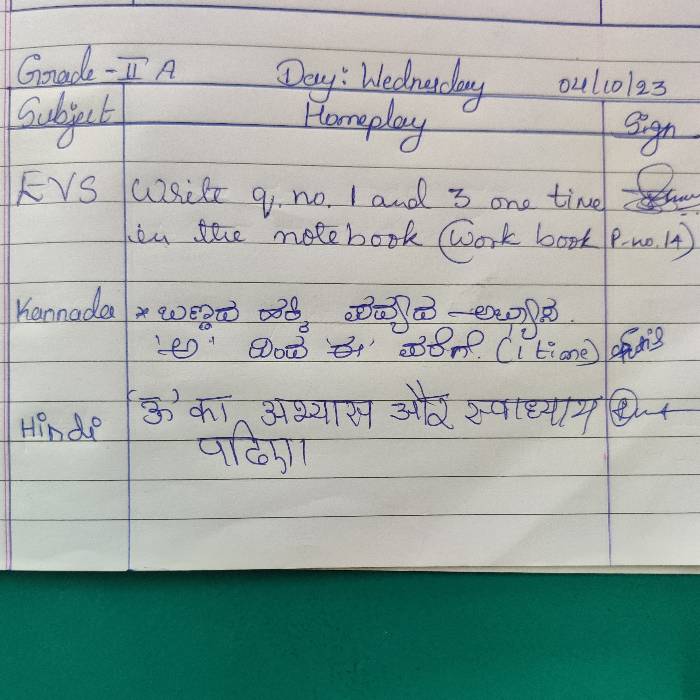 Grade - II A Day: Wednesday 04/10/23
Subject Homeplay Sign
EVS Write q. no. 1 and 3 one time
in the notebook (Work book P-no. 14)
Kannada * ಬಣ್ಣದ ಹಕ್ಕಿ ಪದ್ಯದ ಅಭ್ಯಾಸ.
'ಅ' ದಿಂದ 'ಈ' ವರೆಗೆ. (1 time)
Hindi 'ऊ' का अभ्यास और स्वाध्याय
पढिए।